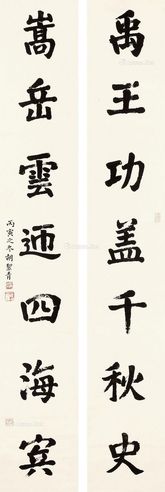 禹王功盖千秋史
嵩岳雲迊四海宾
丙寅之冬胡絜青